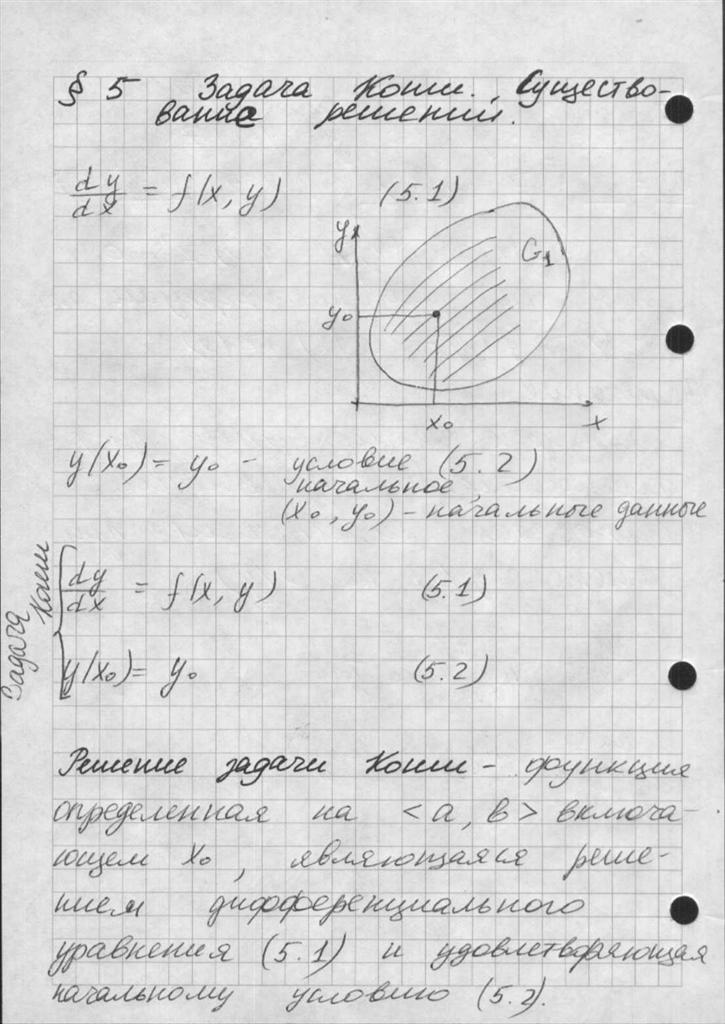 § 5 Задача Коши. Существо-
вание решений.
dy/dx = f(x, y) (5.1)
y
G₁
y₀
x₀
x
y(x₀) = y₀ - условие (5.2)
начальное
(x₀, y₀) - начальные данные
Задача Коши
dy/dx = f(x, y) (5.1)
y(x₀) = y₀ (5.2)
Решение задачи Коши - функция
определенная на <a, b> включа-
ющем x₀, являющаяся реше-
нием дифференциального
уравнения (5.1) и удовлетворяющая
начальному условию (5.2).